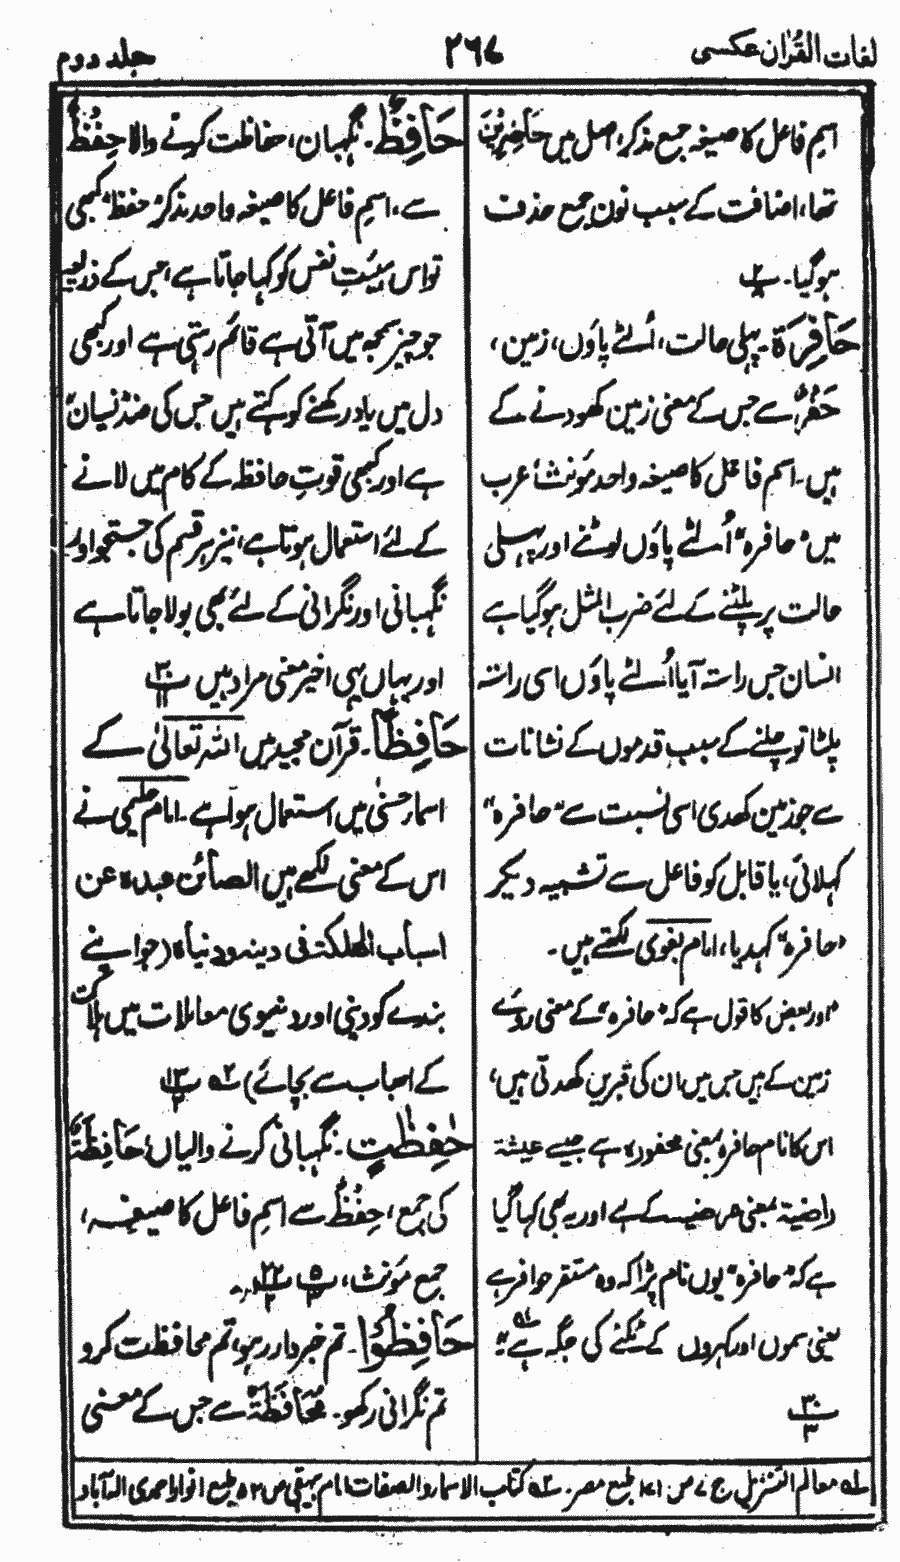 لغات القرآن عکسی
۲۶۷
جلد دوم
اسمِ فاعل کا صیغہ جمع مذکر، اصل میں حَاضِرِیْنَ
تھا، اضافت کے سبب نونِ جمع حذف
ہوگیا۔
حَافِرَۃِ۔ پہلی حالت، اُلٹے پاؤں، زمین،
حَفْرٌ سے جس کے معنی زمین کھودنے کے
ہیں۔ اسم فاعل کا صیغہ واحد مؤنث، عرب
میں "حافرہ" اُلٹے پاؤں لوٹنے اور پہلی
حالت پر پلٹنے کے لئے ضرب المثل ہوگیا ہے
انسان جس راستہ آیا اُلٹے پاؤں اسی راستہ
پلٹا تو چلنے کے سبب قدموں کے نشانات
سے جو زمین کھدی اسی نسبت سے "حافرہ"
کہلائی، یا قابل کو فاعل سے تشبیہ دیکر
"حافرہ" کہدیا، امام بغوی لکھتے ہیں۔
"اور بعض کا قول ہے کہ "حافرہ" کے معنی روئے
زمین کے ہیں جس میں ان کی قبریں کھدتی ہیں،
اس کا نام حافرہ بمعنی محفورہ ہے جیسے عیشۃ
راضیۃ بمعنی مرضیۃ کے ہے اور یہ بھی کہا گیا
ہے کہ "حافرہ" یوں نام پڑا کہ وہ مستقر حوافر ہے
یعنی سموں اور کہروں کے ٹکنے کی جگہ ہے"
۳۰
۳
حَافِظٌ۔ نگہبان، حفاظت کرنے والا حِفْظٌ
سے، اسمِ فاعل کا صیغہ واحد مذکر "حفظ" کبھی
تو اس ہیئتِ نفس کو کہا جاتا ہے جس کے ذریعہ
جو چیز سمجھ میں آتی ہے قائم رہتی ہے اور کبھی
دل میں یاد رکھنے کو کہتے ہیں جس کی ضد نسیان
ہے اور کبھی قوتِ حافظہ کے کام میں لانے
کے لئے استعمال ہوتا ہے، نیز ہر قسم کی جستجو اور
نگہبانی اور نگرانی کے لئے بھی بولا جاتا ہے
اور یہاں یہی اخیر معنی مراد ہیں
حَافِظًا۔ قرآن مجید میں اللہ تعالیٰ کے
اسمار حسنیٰ میں استعمال ہوا ہے۔ امام حلیمی نے
اس کے معنی لکھے ہیں الصائن عبدہ عن
اسباب الھلکۃ فی دینہ ودنیاہ (جو اپنے
بندے کو دینی اور دنیوی معاملات میں ہلاکت
کے اسباب سے بچائے)
حٰفِظٰتٌ۔ نگہبانی کرنے والیاں، حَافِظَۃٌ
کی جمع، حِفْظٌ سے اسمِ فاعل کا صیغہ،
جمع مؤنث،
حَافِظُوْا۔ تم خبردار رہو، تم محافظت کرو
تم نگرانی رکھو۔ مُحَافَظَۃٌ سے جس کے معنی
لہ معالم التنزیل ج ۷ ص ۱۷۱ طبع مصر۔ لہ کتاب الاسمار والصفات امام بیہقی ص ۵۲ طبع انوار احمدی الہ آباد